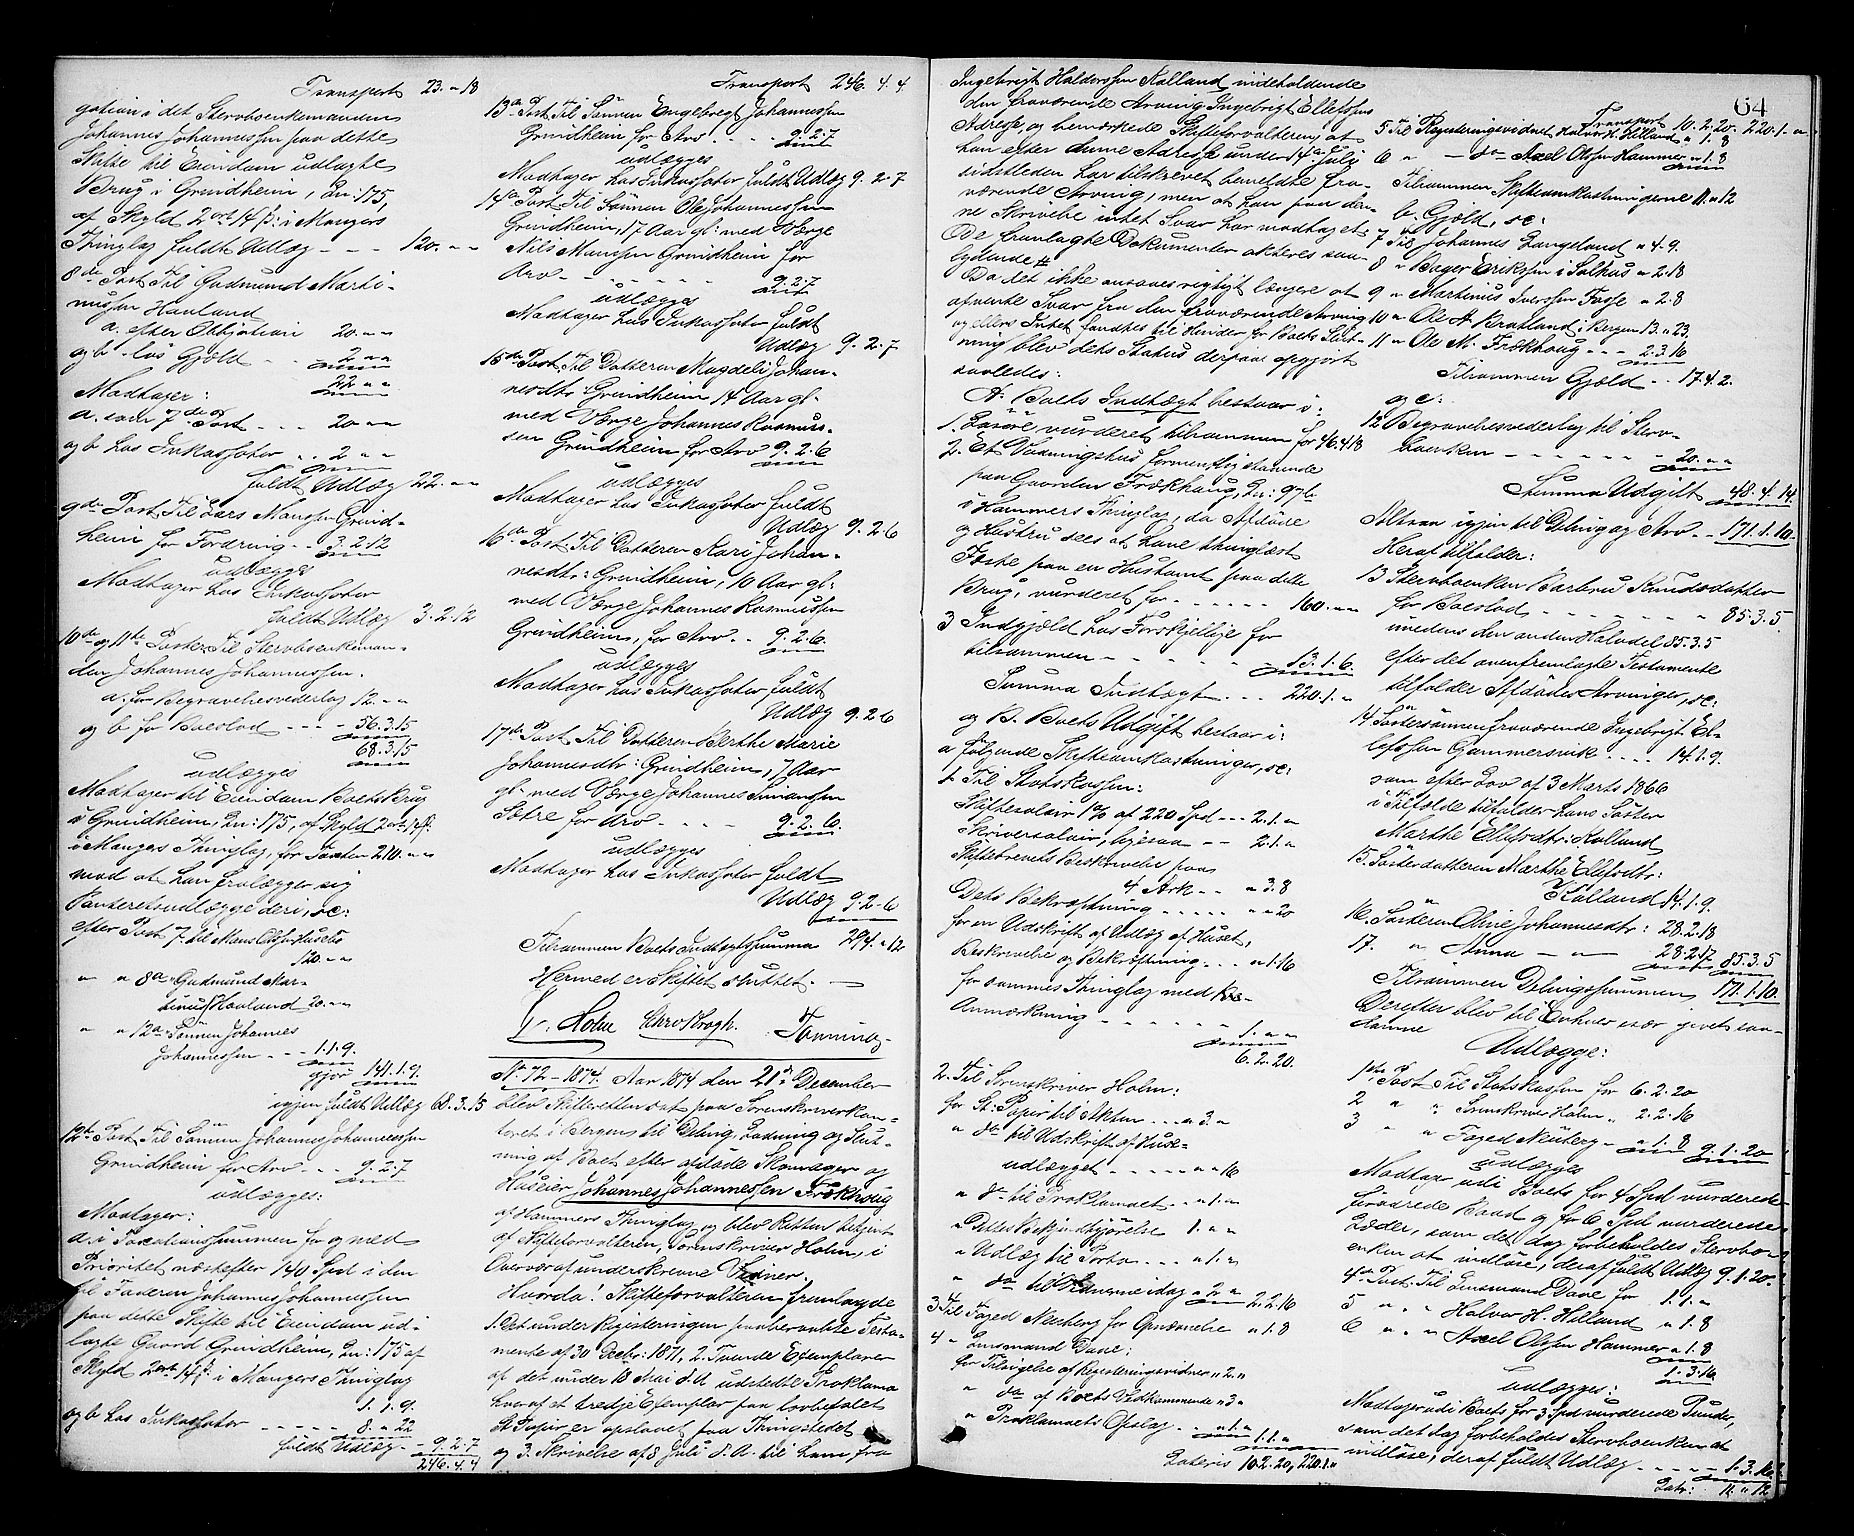 Transport 23 " 18
gation i det Stervboenkemanden
Johannes Johannessen paa dette
Skifte til Eiendom udlagte
Brug i Grindheim, Ln: 175,
af Skyld 2 ort 14 ß i Mangers
Thinglag fuldt Udlæg - - - 120. " "
8de Post Til Gudmund Marti-
nussen Havland
a. efter Obligation 20. " "
og b. løs Gjæld - - 2 " "
22 " "
Modtager:
a. som 7de Post - - - 20 " "
og b hos Inkassator " . 2 " "
fuldt Udlæg 22. " "
9de Post Til Lars Monsen Grind-
heim for Fordring - . 3. 2. 12
udlægges
Modtager hos Inkassator
fuldt Udlæg 3. 2. 12
10de og 11te Poster Til Stervboenkeman-
den Johannes Johannessen.
a. for Begravelsesvederlag 12. " "
og b for Boeslod - - - 56. 3. 15
68. 3. 15
udlægges
Modtager til Eiendom Boets Brug
i Grindheim, Ln: 175, af Skyld 2 ort 14 ß:
i Mangers Thinglag, for Taxten 210. " "
mod at han fralægger sig
Panteretsudlægge deri, sc:
efter Post 7 til Mons Olsen Husebø
120. " "
" " 8a " Gudmund Mar-
tinus Havland 20. " "
" " 12a " Sønnen Johannes
Johannessen - - - 1. 1. 9.
gjør 141. 1. 9.
igjen fuldt Udlæg 68. 3. 15
12te Post Til Sønnen Johannes Johannessen
Grindheim for Arv - - - 9. 2. 7
udlægges:
Modtager:
a. i Taxationssummen for og med
Prioritet næstefter 140 Spd i den
til Faderen Johannes Johannessen
paa dette Skifte til Eiendom ud-
lagte Gaard Grindheim, Ln: 175 af
Skyld 2 ort 14 ß i Mangers Thinglag
1. 1. 9.
og b hos Inkassator - - - - 8. " 22
fuldt Udlæg - 9. 2. 7
246. 4. 4
Transport 246. 4. 4.
13de Post Til Sønnen Engebregt Johannessen
Grindheim for Arv - - - 9. 2. 7.
udlægges
Modtager hos Inkassator fuldt Udlæg 9. 2. 7
14de Post Til Sønnen Ole Johannessen
Grindheim, 17 Aar gl: med Værge
Nils Monsen Grindheim for
Arv - - - - - - 9. 2. 7
udlægges
Modtager hos Inkassator fuldt
Udlæg 9. 2. 7
15de Post Til Datteren Magdeli Johan-
nesdtr: Grindheim 14 Aar gl-
med Værge Johannes Rasmus-
sen Grindheim for Arv 9. 2. 6
udlægges
Modtager hos Inkassator fuldt
Udlæg 9. 2. 6
16de Post Til Datteren Kari Johan-
nesdtr: Grindheim, 10 Aar gl:
med Værge Johannes Rasmussen
Grindheim, for Arv - . 9. 2. 6.
udlægges
Modtager hos Inkassator fuldt
Udlæg 9. 2. 6
17de Post Til Datteren Berthe Marie
Johannesdtr: Grindheim, 7 Aar
gl- med Værge Johannes Simonsen
Sætre for Arv - - - - 9. 2. 6.
udlægges
Modtager hos Inkassator fuldt
Udlæg 9. 2. 6
Tilsammen Boets Indtægtssumma 294. " 12
Hermed er Skiftet sluttet. -
Holm Chr Krogh.
No 72 - 1874. Aar 1874 den 21de December
blev Skifteretten sat paa Sorenskriverkon-
toret i Bergen til Deling, Lodning og Slut-
ning af Boet efter afdøde Skomager og
Huseier Johannes Johannessen Frækhaug
af Hammers Thinglag, og blev Retten betjent
af Skifteforvalteren, Sorenskriver Holm, i
Overvær af underskrevne Vidner.
Hvorda! Skifteforvalteren fremlagde
1. Det under Registeringen paaberaabte Testa-
mente af 30 Decbr: 1871, 2. Tvende Exemplarer
af det under 18 Mai d. A. udstedte Proklama
hvoraf et tredje Exemplar paa lovbefalet
St. Papir er opslaaet paa Thingstedet
og 3. Skrivelse af 8 Juli d. A. til ham fra
64
Ingebrigt Haldorssen Kalland, indeholdende
den fraværende Arving Ingebrigt Ellefsens
Adresse, og bemærkede Skifteforvalteren, at
han efter denne Adresse under 14de Juli
sidstleden har tilskrevet bemeldte fra-
værende Arving, men at han paa den-
ne Skrivelse intet Svar har modtaget.
De fremlagte Dokumenter akteres saa-
lydende #
Da det ikke ansaaes rigtigt længere at
afvente Svar fra den fraværende Arving
og ellers Intet fandtes til Hinder for Boets Slut-
ning blev dets Status derpaa opgjort
saaledes:
A. Boets Indtægt bestaar i:
1. Løsøre vurderet tilsammen for 46. 4. 18
2. Et Vaaningshus formentlig staaende
paa Gaarden Frækhaug, Ln: 97 b
i Hammers Thinglag, da Afdøde
og Hustru sees at have thinglæst
Fæste paa en Hustomt paa dette
Brug, vurderet for - - - - - 160. " "
3 Indgjæld hos Forskjellige for
tilsammen - - - - - - 13. 1. 6.
Summa Indtægt - - - 220. 1. "
og B. Boets Udgift bestaar i:
a følgende Skifteomkostninger, sc:
1. Til Statskassen:
Skiftesalair 1% af 220 Spd - - - 2. 1. "
Skriversalair, ligesaa - - - 2. 1. "
Skiftebrevets Beskrivelse paa
4 Ark - - " 3. 8
Dets Bekræftning - - - - - " " 20
for en Udskrift af Udlæg af Huset,
Beskrivelse og Bekræftning - - . " 1. 16
for sammes Thinglag med
Anmærkning - - - - - - 1. " "
6. 2. 20.
2. Til Sorenskriver Holm:
for St: Papir til Akten - - . " 3. "
" do til Udskrift af Huse-
udlægget - - - - - - " " 16
" do til Proklamaet - - " 1. "
" Dettes Bekjendtgjørelse 1. " "
" Udlæg til Porto - - - " 1. "
" do til Vidnerne idag " 2 " 2. 2. 16
3 Til Foged Neuberg for Opnævnelse " 1. 8
4 " Lensmand Dave:
for Tilsigelse af Registeringsvidner " 2. "
" do af Boets Vedkommende " 3 "
" Proklamaets Opslag - - - " 1. "
1. 1. "
Lateris 10. 2. 20, 220. 1. "
Transport 10. 2. 20. 220. 1. "
5 Til Registeringsvidnet Halvor H. Hilland " 1. 8
6 " - do Axel Olsen Hammer " 1. 8
Tilsammen Skifteomkostningerne 11. " 12
b. Gjæld, sc:
7 Til Johannes Langeland " 4. 9.
8 " Bager Erikssen i Salhus " 2. 18
9 " Martinus Iverssen Fosse " 2. 8
10 " Ole A. Bratland i Bergen 13. " 23.
11 " Ole M. Frækhaug - - - 2. 3. 16
Tilsammen Gjæld - . 17. 4. 2.
og c:
12 Begravelsesvederlag til Sterv-
boenken - - - - - - 20. " "
Summa Udgift 48. 4. 14.
Altsaa igjen til Deling og Arv - . 171. 1. 10.
Heraf tilfalder:
13 Stervboenken Barbru Knudsdatter
for Boeslod - - - - - - 85. 3. 5.
imedens den anden Halvdel 85. 3. 5
efter det ovenfremlagte Testamente
tilfalder Afdødes Arvinger, sc:
14 Søstersønnen fraværende Ingebrigt El-
lefssen Gammersvik - - - . 14. 1. 9.
som efter Lov af 3 Marts 1866
i Tilfælde tilfalder hans Søster
Marthe Ellefsdtr: Kalland
15. Søsterdatteren Marthe Ellefsdtr:
Kalland 14. 1. 9.
16. Søsteren Olive Johannesdtr: 28. 2. 18
17. " Anna - " - 28. 2. 17 85. 3. 5
Tilsammen Delingssummen 171. 1. 10.
Derefter blev til Enhver især gjort saa-
danne
Udlægge:
1ste Post Til Statskassen for 6. 2. 20
2 " " Sorenskriver Holm " 2. 2. 16
3 " " Foged Neuberg - " 1. 8 9. 1. 20
udlægges
Modtager udi Boets for 4 Spd vurderede
Baad og for 6 Spd vurderede
Læder, som det dog forbeholdes Stervbo-
enken at indløse, deraf fuldt Udlæg 9. 1. 20.
4de Post. Til Lensmand Dave for 1. 1. "
5 " " " Halvor H. Hilland " 1. 8
6 " " " Axel Olsen Hammer " 1. 8
1. 3. 16.
udlægges:
Modtager udi Boets for 3 Spd vurderede
som det dog forbeholdes Stervboenken at
indløse, deraf fuldt Udlæg - - - - 1. 3. 16.
Latr: 11. " 12